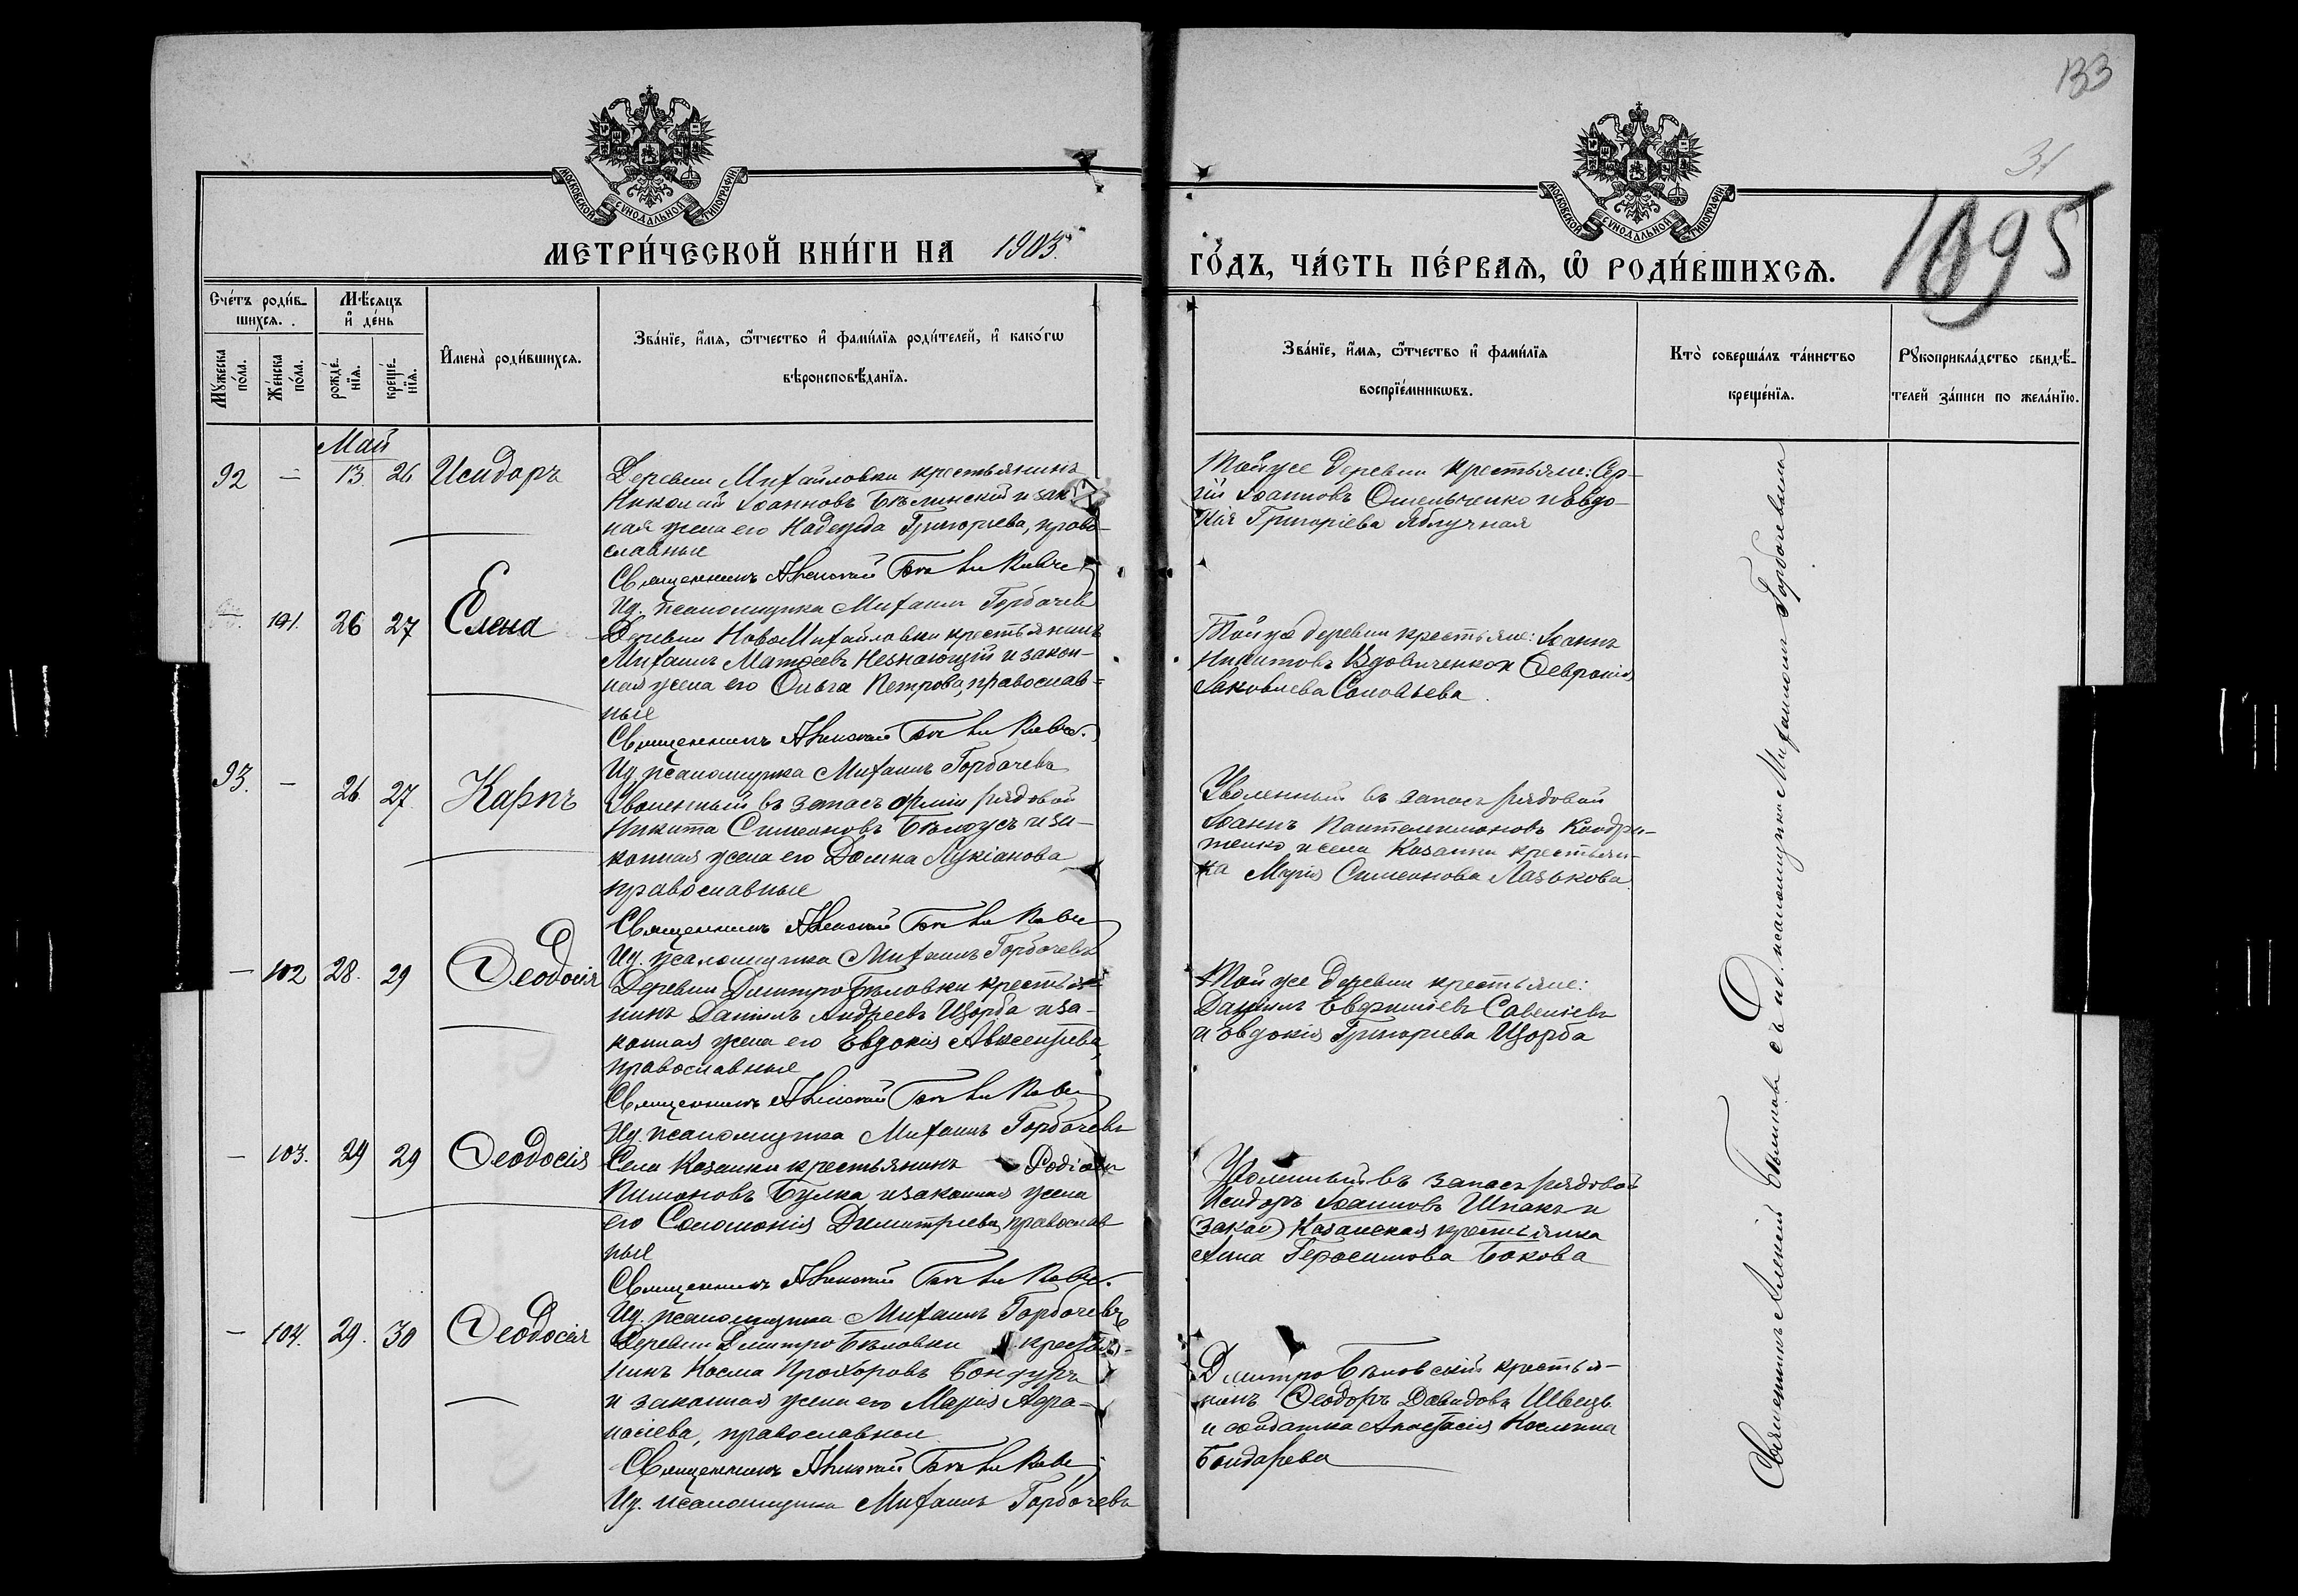 133
31
1095
МОСКОВСКОЙ СУНОДАЛЬНОЙ ТИПОГРАФІИ
МОСКОВСКОЙ СУНОДАЛЬНОЙ ТИПОГРАФІИ
МЕТРИ́ЧЕСКОЙ КНИ́ГИ НА 1903.
ГО́ДЪ, ЧА́СТЬ ПЕ́РВАѦ, Ѡ҆ РОДИ́ВШИХСѦ.
Сче́тъ роди́в-
шихсѧ.
Мѣ́сѧцъ
и҆ де́нь
Мꙋ́жеска по́ла.
Же́нска по́ла.
рожде́нїѧ.
креще́нїѧ.
И҆мена̀ роди́вшихсѧ.
Зва́нїе, и҆́мѧ, ѻ҆́тчество и҆ фами́лїѧ роди́телей, и҆ како́гѡ
вѣроисповѣ́данїѧ.
Зва́нїе, и҆́мѧ, ѻ҆́тчество и҆ фами́лїѧ
воспрїе́мникѡвъ.
Кто̀ соверша́лъ та́инство
креще́нїѧ.
Рꙋкоприкла́дство свидѣ́-
телей за́писи по жела́нїю.
Май
92 — 13. 26 Исидоръ
Деревни Михайловки крестьянинъ
Николай Іоанновъ Бѣлинскій и закон
ная жена его Надежда Григорьева, право-
славные
Священникъ Алексѣй
Ид. псаломщика Михаилъ Горбачевъ
Той же деревни крестьяне: Сер-
гій Іоанновъ Омельченко и Евдо-
кія Григоріева Яблучная
— 101. 26 27 Елена
Деревни НовоМихайловки крестьянинъ
Михаилъ Матѳеевъ Незнающій и закон-
ная жена его Ольга Петрова, православ-
ные
Священникъ Алексѣй
Ид. псаломщика Михаилъ Горбачевъ
Той же деревни крестьяне: Іоаннъ
Никитовъ Вдовиченко и Февронія
Іаковлева Соловьева.
93. — 26. 27. Карпъ
Уволенный въ запасъ арміи рядовой
Никита Симеоновъ Бѣлоусъ и за-
конная жена его Домна Лукіанова
православные
Священникъ Алексѣй
Ид. псаломщика Михаилъ Горбачевъ
Уволенный въ запасъ рядовой
Іоаннъ Пантелеимоновъ Кондра-
тенко и села Казанки крестьян-
ка Марія Симеонова Лазькова
— 102 28. 29 Ѳеодосія
Деревни ДмитроБѣловки крестья-
нинъ Даніилъ Андреевъ Щорба и за-
конная жена его Евдокія Авксентіева,
православные
Священникъ Алексѣй
Ид. псаломщика Михаилъ Горбачевъ
Той же деревни крестьяне:
Даніилъ Евфиміевъ Савеліевъ
и Евдокія Григорьева Щорба
— 103. 29 29 Ѳеодосія
Села Казанки крестьянинъ Родіонъ
Пимоновъ Булка и законная жена
его Соломонія Димитріева, православ
ные
Священникъ Алексѣй
Ид. псаломщика Михаилъ Горбачевъ
Уволенный въ запасъ рядовой
Исидоръ Іоанновъ Шпакъ и
Казанская крестьянка
Анна Герасимова Бокова
— 104. 29. 30 Ѳеодосія
Деревни ДмитроБѣловки крестья-
нинъ Косма Прохоровъ Бондарь
и законная жена его Марія Аѳа-
насіева, православные
Священникъ Алексѣй
Ид. псаломщика Михаилъ Горбачевъ
ДмитроБѣловскій крестья-
нинъ Ѳеодоръ Давидовъ Швецъ
и солдатка Анастасія Космина
Бондарева
Священникъ Алексѣй съ ид. псаломщика Михаиломъ Горбачевымъ